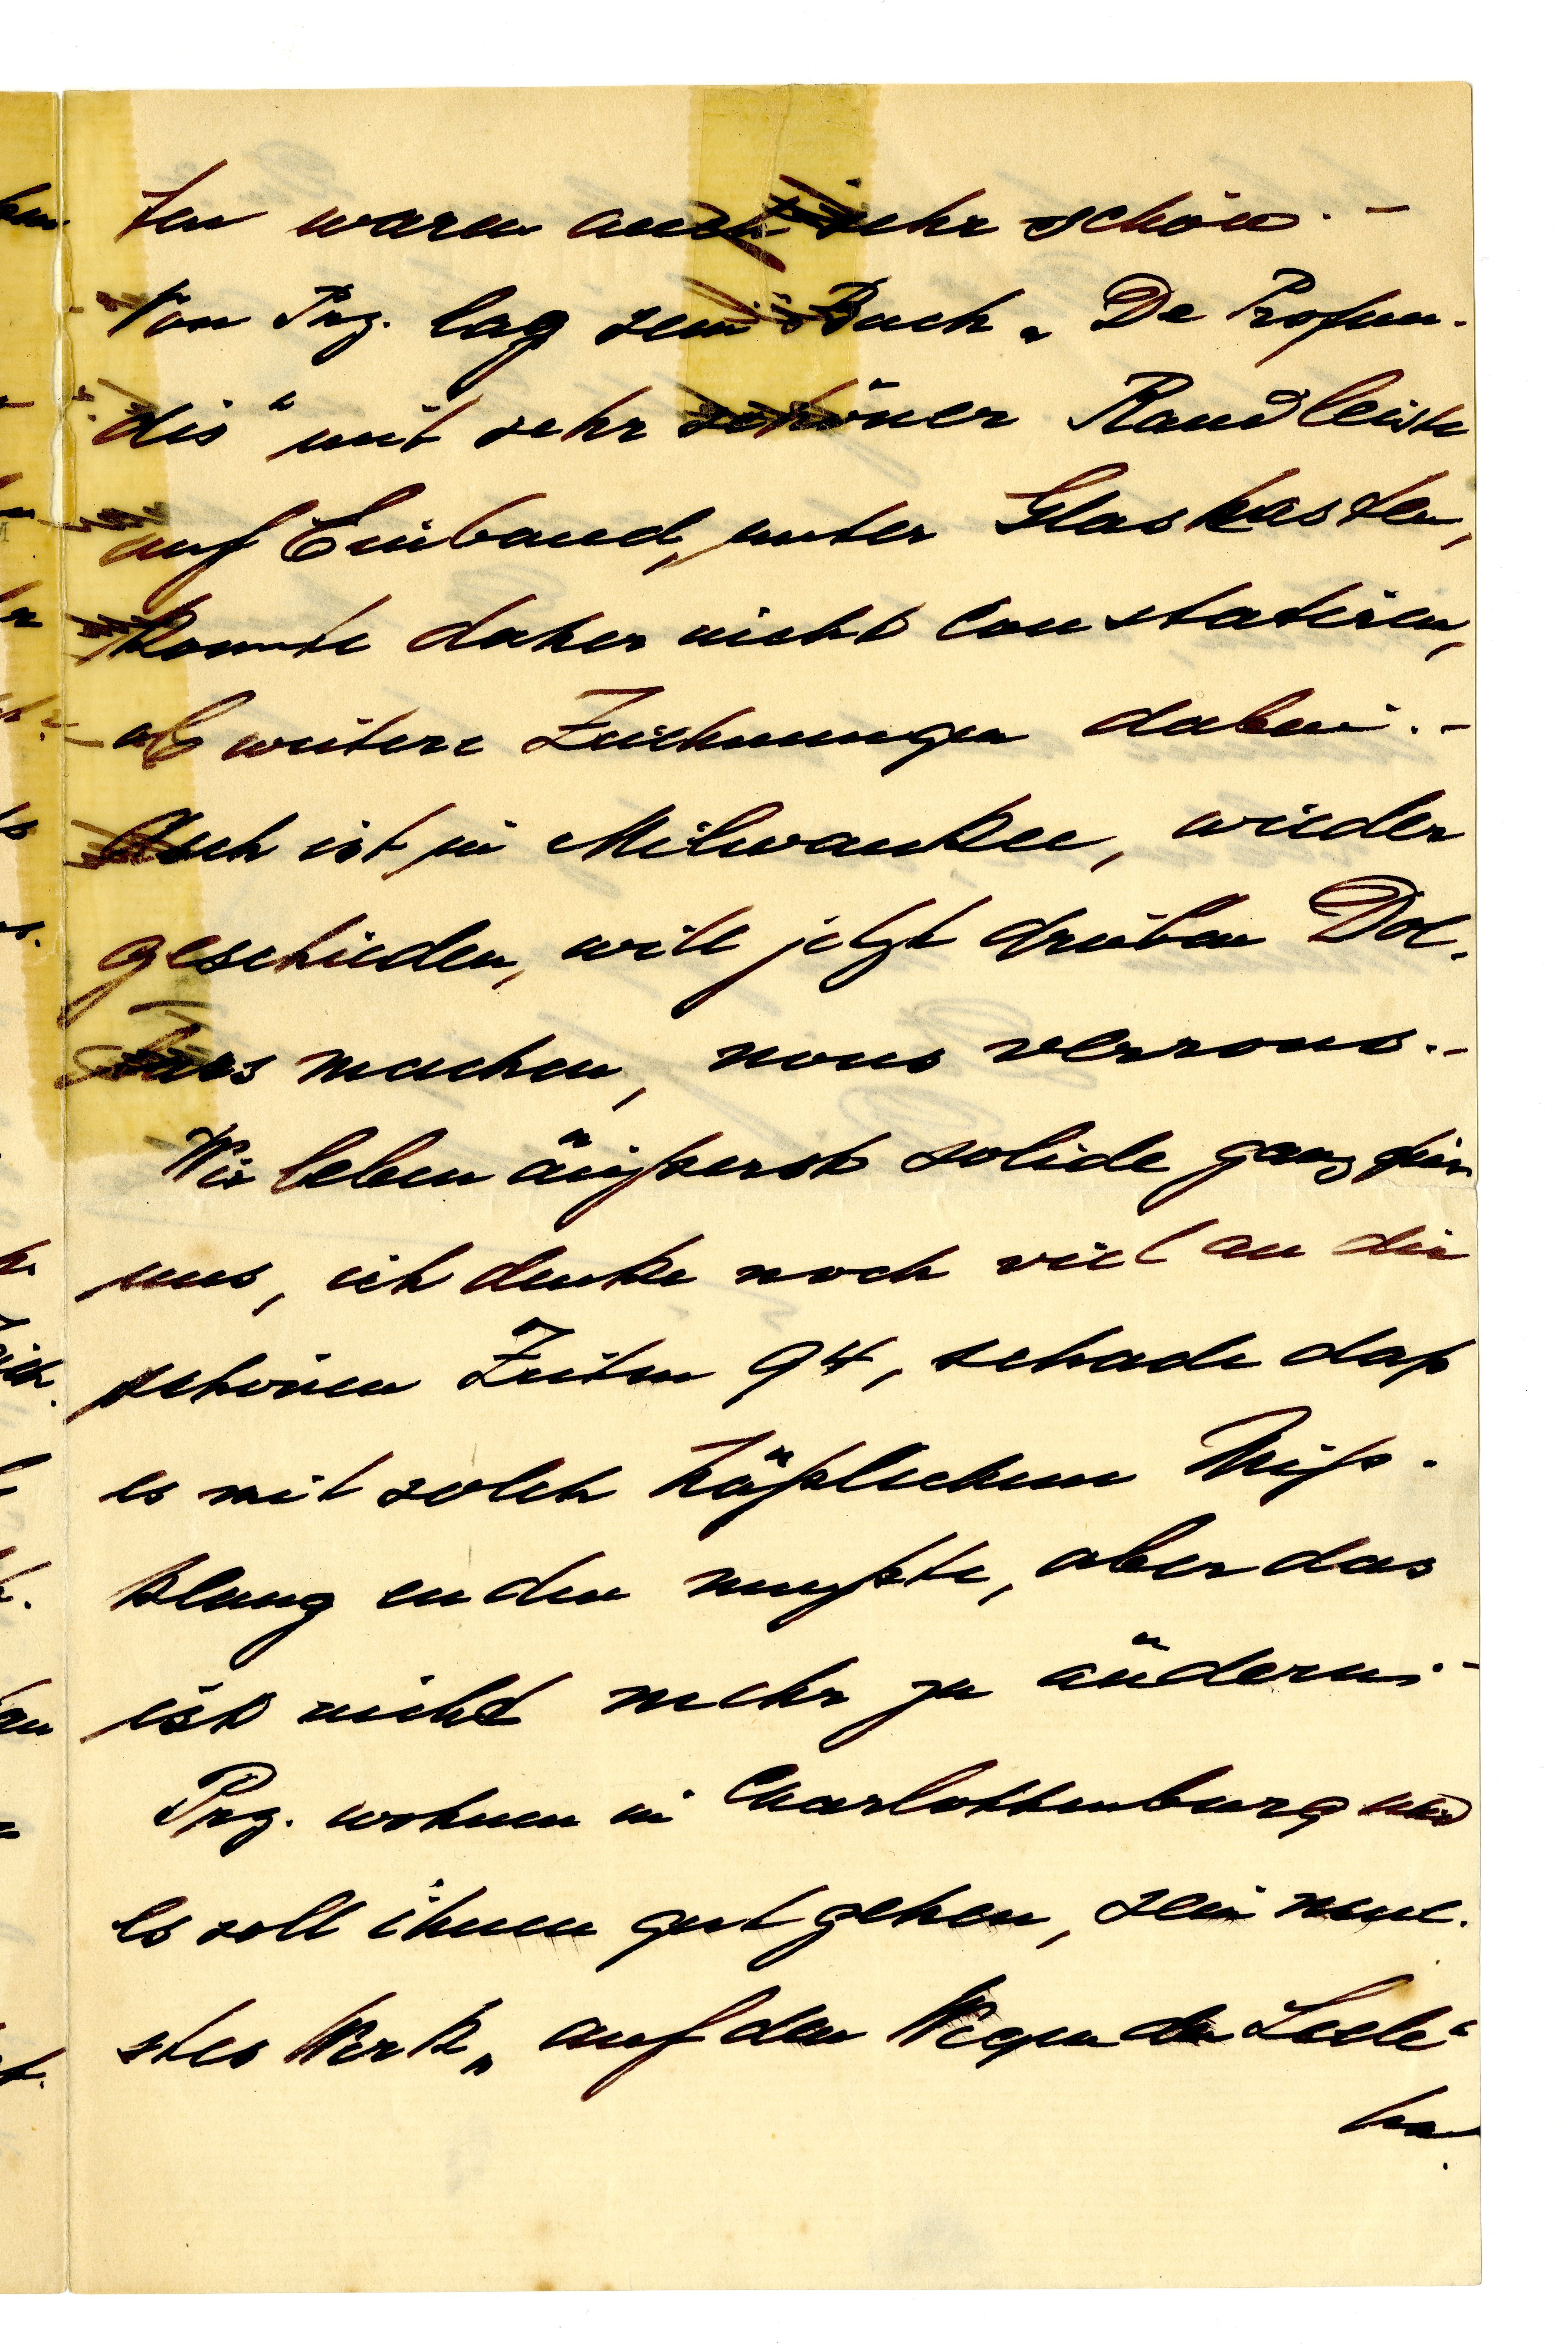 ten waren auch sehr schön. –
Von Prz. lag sein Buch „De Profun-
dis“ mit sehr schöner Randleiste
auf Einband, unter Glaskasten,
konnte daher nicht constatiren,
ob weitere Zeichnungen dabei. –
Asch ist in Milwaukee, wieder
geschieden, will jetzt drüben Dol-
lars machen, nous verrons. –
Wir leben äußerst solide ganz für
uns, ich denke noch viel an die
schönen Zeiten 94, schade daß
es mit solch häßlichem Miß-
klang enden mußte, aber das
ist nicht mehr zu ändern. –
Prz. wohnen in Charlottenburg und
es soll ihnen gut gehen, sein neue-
stes Werk „auf den Wegen der Seele“
ha